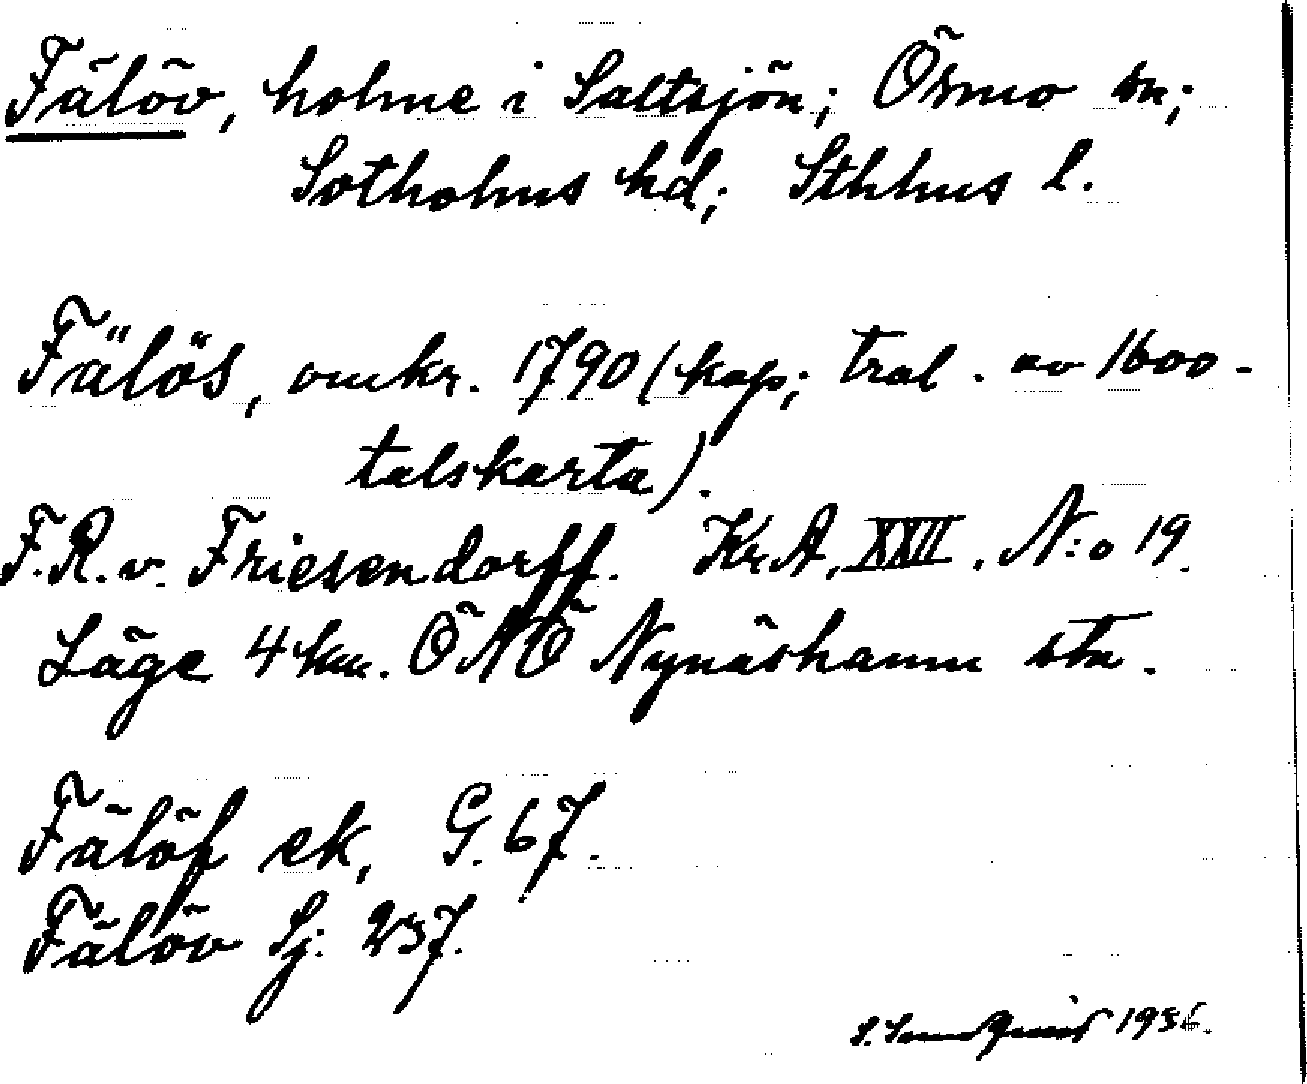 Fälöv, holme i Saltsjön; Ösmo sn;
Sotholms hd; Sthlms l.
Fälös, omkr. 1790 (kop; tral. av 1600-
talskarta).
F.R. v. Friesendorff. Kr.A. XXII. N:o 19.
Läge 4 km. ÖNÖ Nynäshamn stn.
Fälöf ek, G. 67.
Fälöv Sj. 237.
1936.